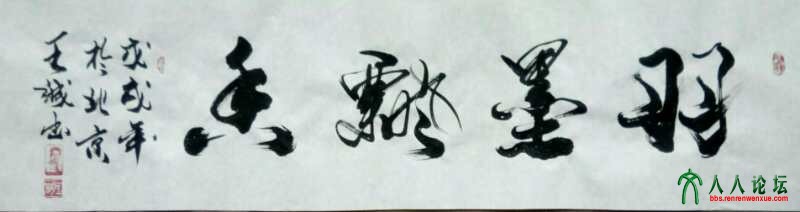 羽墨飄香
戊戌年
於北京
王誠书
人人论坛
bbs.renrenwenxue.com